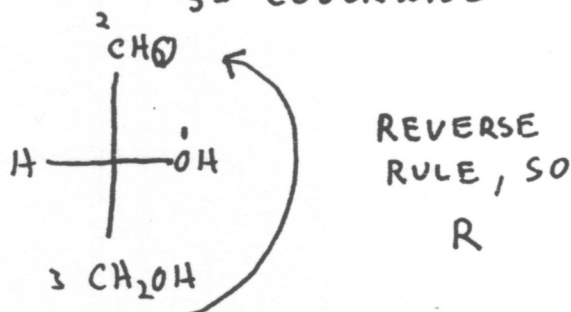 2
CHO
1
H OH
3 CH2OH
REVERSE
RULE, SO
R